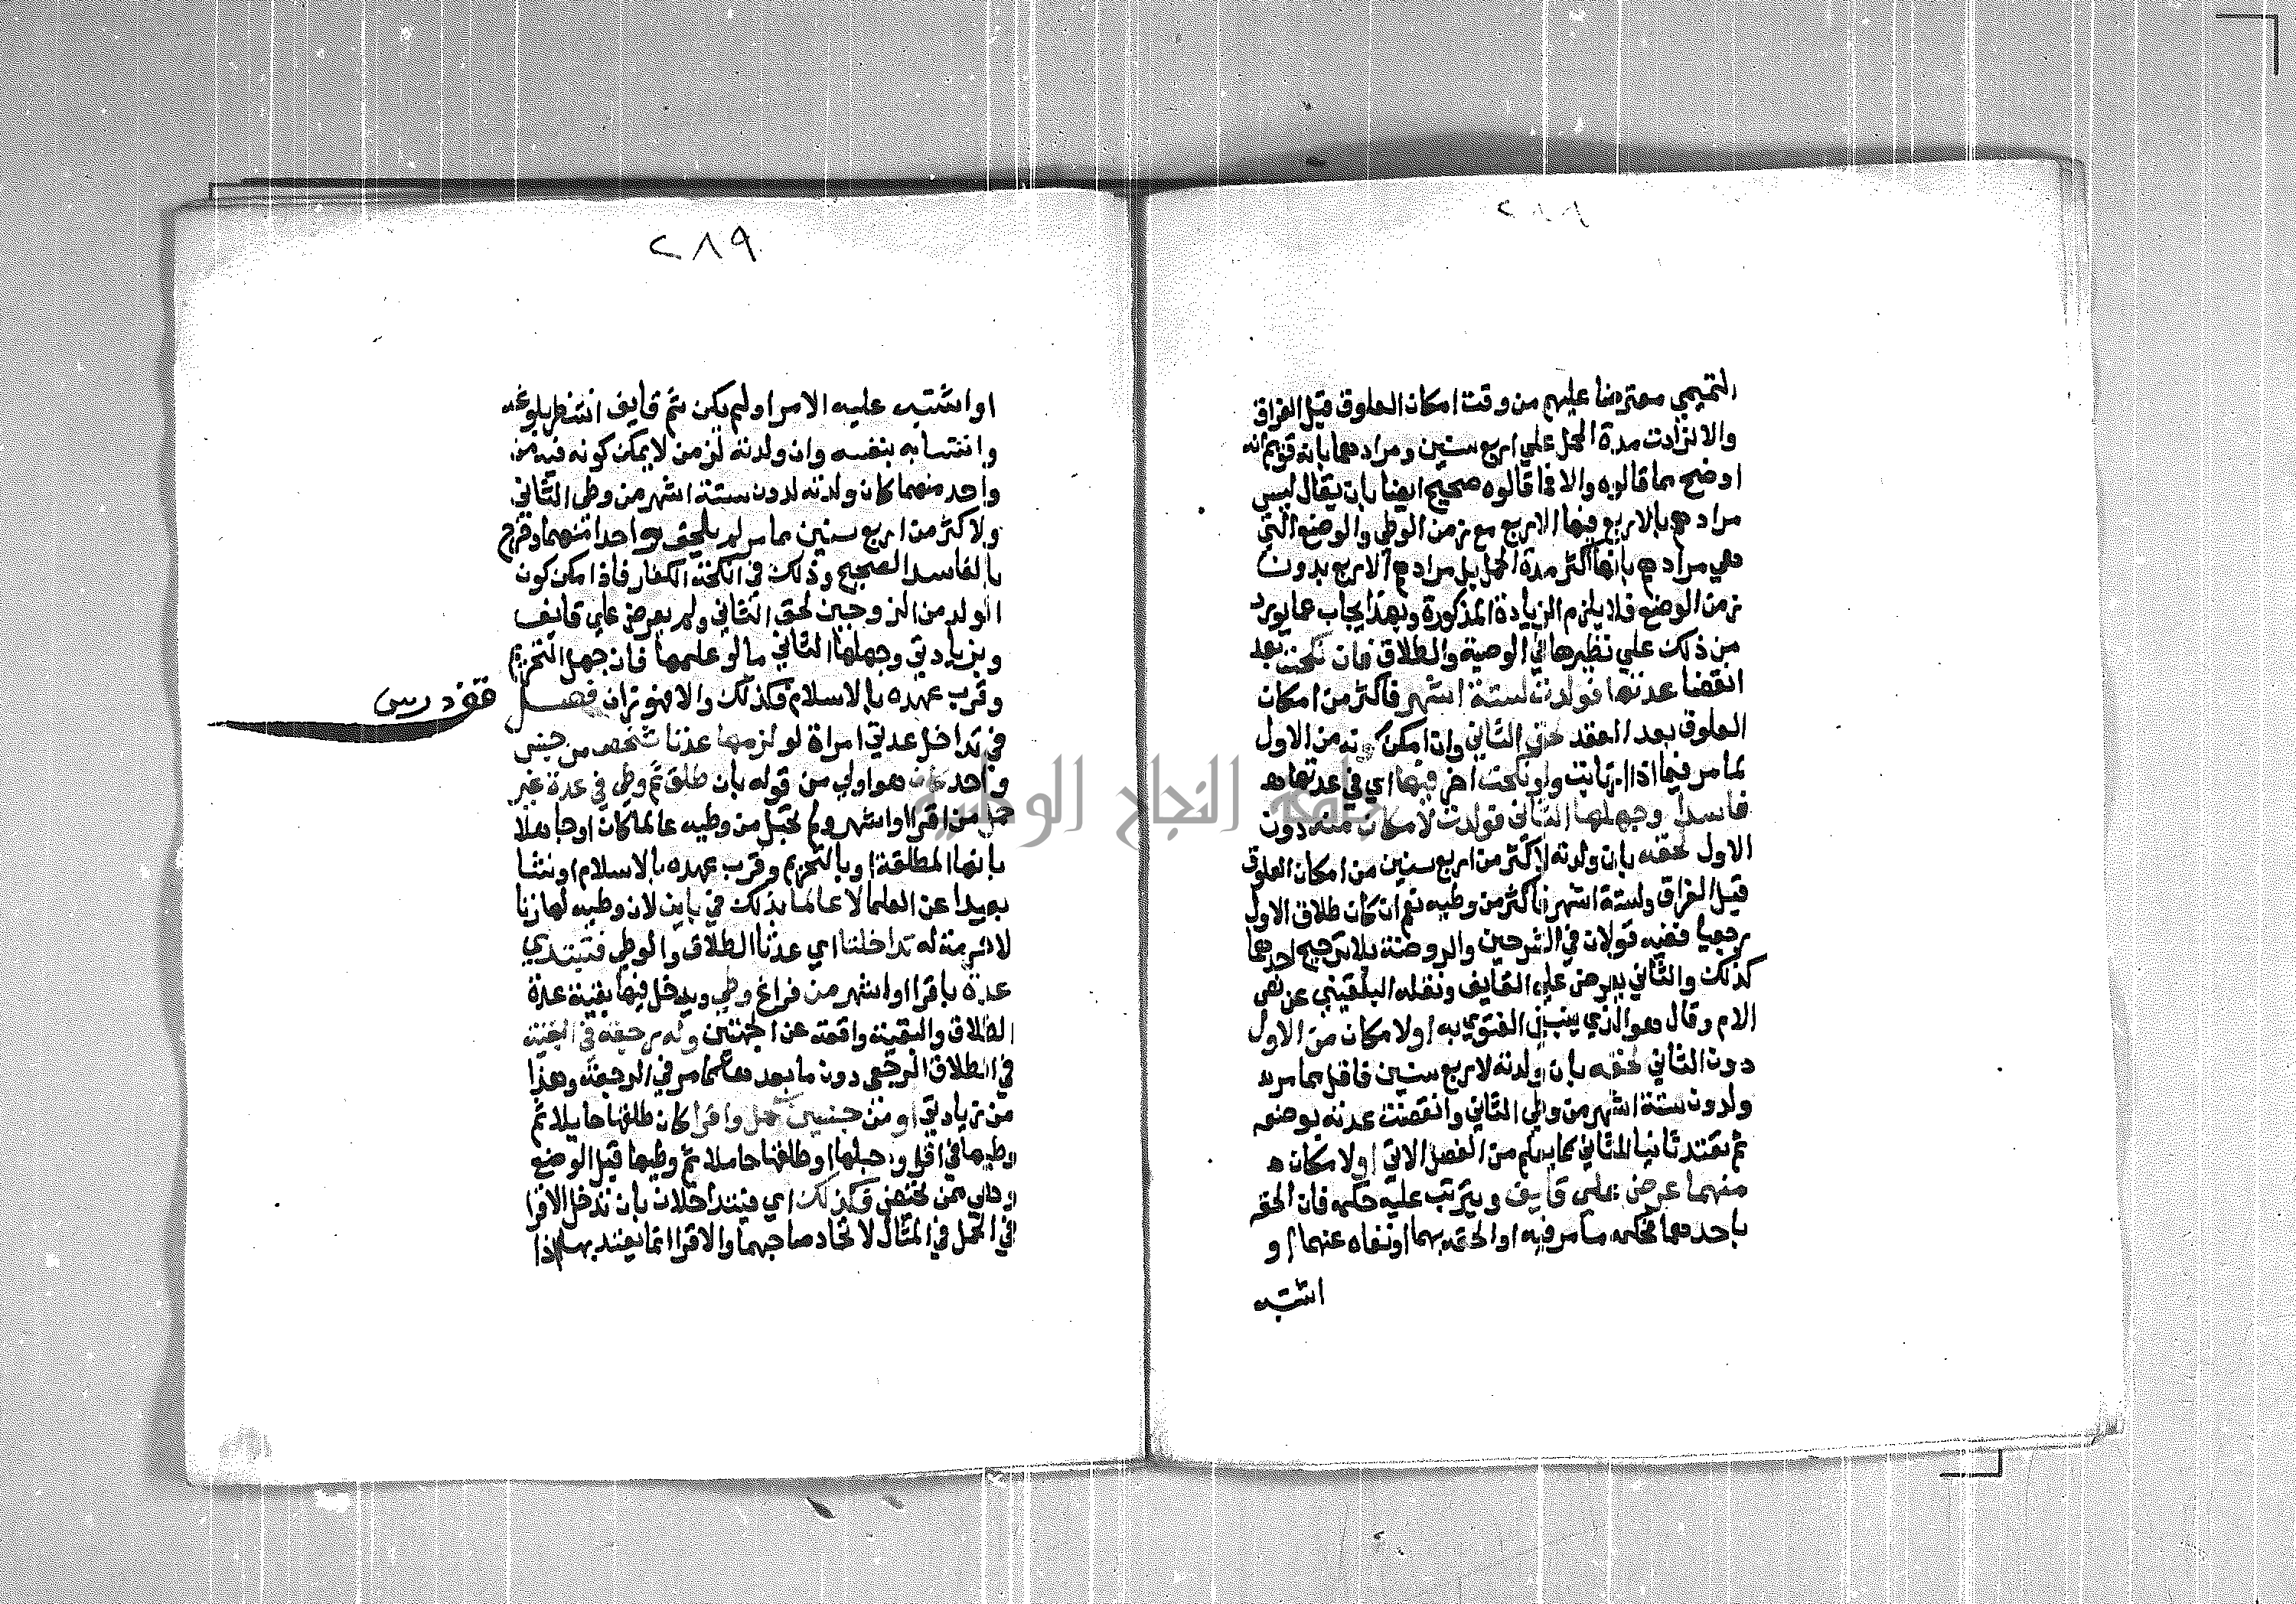 ٢٨٨
التميمي معترضا عليهم من وقت امكان العلوق قبل الفراق
والا لزادت مدة الحمل علي اربع سنين ومرادهما بانه قويم انه
اوضح مما قالوه والا فما قالوه صحيح ايضا بان يقال ليس
مرادهم بالاربع فيها الاربع مع زمن الوطي والوضع التي
هي مرادهم بانها اكثر مدة الحمل بل مرادهم الاربع بدون
زمن الوضع فلا يلزم الزيادة المذكورة وبهذا يجاب عما يورد
من ذلك علي نظيرها في الوصية والطلاق فان نكحت بعد
انقضا عدتها فولدت لستة اشهر فاكثر من امكان
العلوق بعد العقد لحق الثاني وان امكن كونه من الاول
لما مر فيما اذا ارتابت ولو نكحت اخر فيها اي في عدتها هـ
فاسدا وجهلها الثاني فولدت لامكان منه دون
الاول لحقه بان ولدته لاكثر من اربع سنين من امكان العلوق
قبل الفراق ولستة اشهر فاكثر من وطيه نعم ان كان طلاق الاول
رجعيا ففيه قولان في الشرحين والروضة بلا ترجيح احدهما
كذلك والثاني يعرض علي القايف ونقله البلقيني عن نص
الام وقال هو الذي ينبغي الفتوي به اولا مكان من الاول
دون الثاني لحقه بان ولدته لاربع سنين فاقل مما مر هـ
ولدون ستة اشهر من وطي الثاني وانقضت عدته بوضعه
ثم تعتد ثانيا للثاني كما يعلم من الفصل الاتي اولا مكان هـ
منهما عرض علي قايف ويترتب عليه حكمه فان الحقه
باحدهما فحكمه ما مر فيه او الحقه بهما او نفاه عنهما او
اشتبه
٢٨٩
او اشتبه عليه الامر او لم يكن ثم قايف انتظر بلوغه
وانتسابه بنفسه وان ولدته لزمن لا يمكن كونه فيه من
واحد منهما كان ولدته لدون ستة اشهر من وطي الثاني
ولاكثر من اربع سنين مما مر لم يلحق بواحد منهما وخرج
بالفاسد الصحيح وذلك في انكحة الكفار فاذا امكن كون
الولد من الزوجين لحق الثاني ولم يعرض علي قايف
وبزيادتي وجهلها الثاني ما لو علمها فان جهل التحريم
وقرب عهده بالاسلام فكذلك والا فهو زان فصل
قف درس
في تداخل عدتي امراة لو لزمها عدتا شخص من جنس
واحد هو اولي من قوله بان طلق ثم وطي في عدة غير
حمل من اقرا او اشهر ولم تحبل من وطيه عالما كان او جاهلا
بانها المطلقة او بالتحريم وقرب عهده بالاسلام او نشا
بعيدا عن العلما لا عالما بذلك في باين لان وطيه لها زنا
لا حرمة له تداخلتا اي عدتا الطلاق والوطي فتبتدي
عدة باقرا او اشهر من فراغ وطي ويدخل فيها بقية عدة
الطلاق والبقية واقعة عن الجهتين وله رجعة في البقية
في الطلاق الرجعي دون ما بعدها كما مر في الرجعة وهذا
من زيادتي او من جنسين حمل واقرا كان طلقها حايلا ثم
وطيها في اقرا وحبلها او طلقها حاملا ثم وطيها قبل الوضع
وهي ممن تحيض فكذلك اي فيتداخلان بان تدخل الاقرا
في الحمل في المثال لاتحاد صاحبهما والاقرا انما يعتد بها اذا